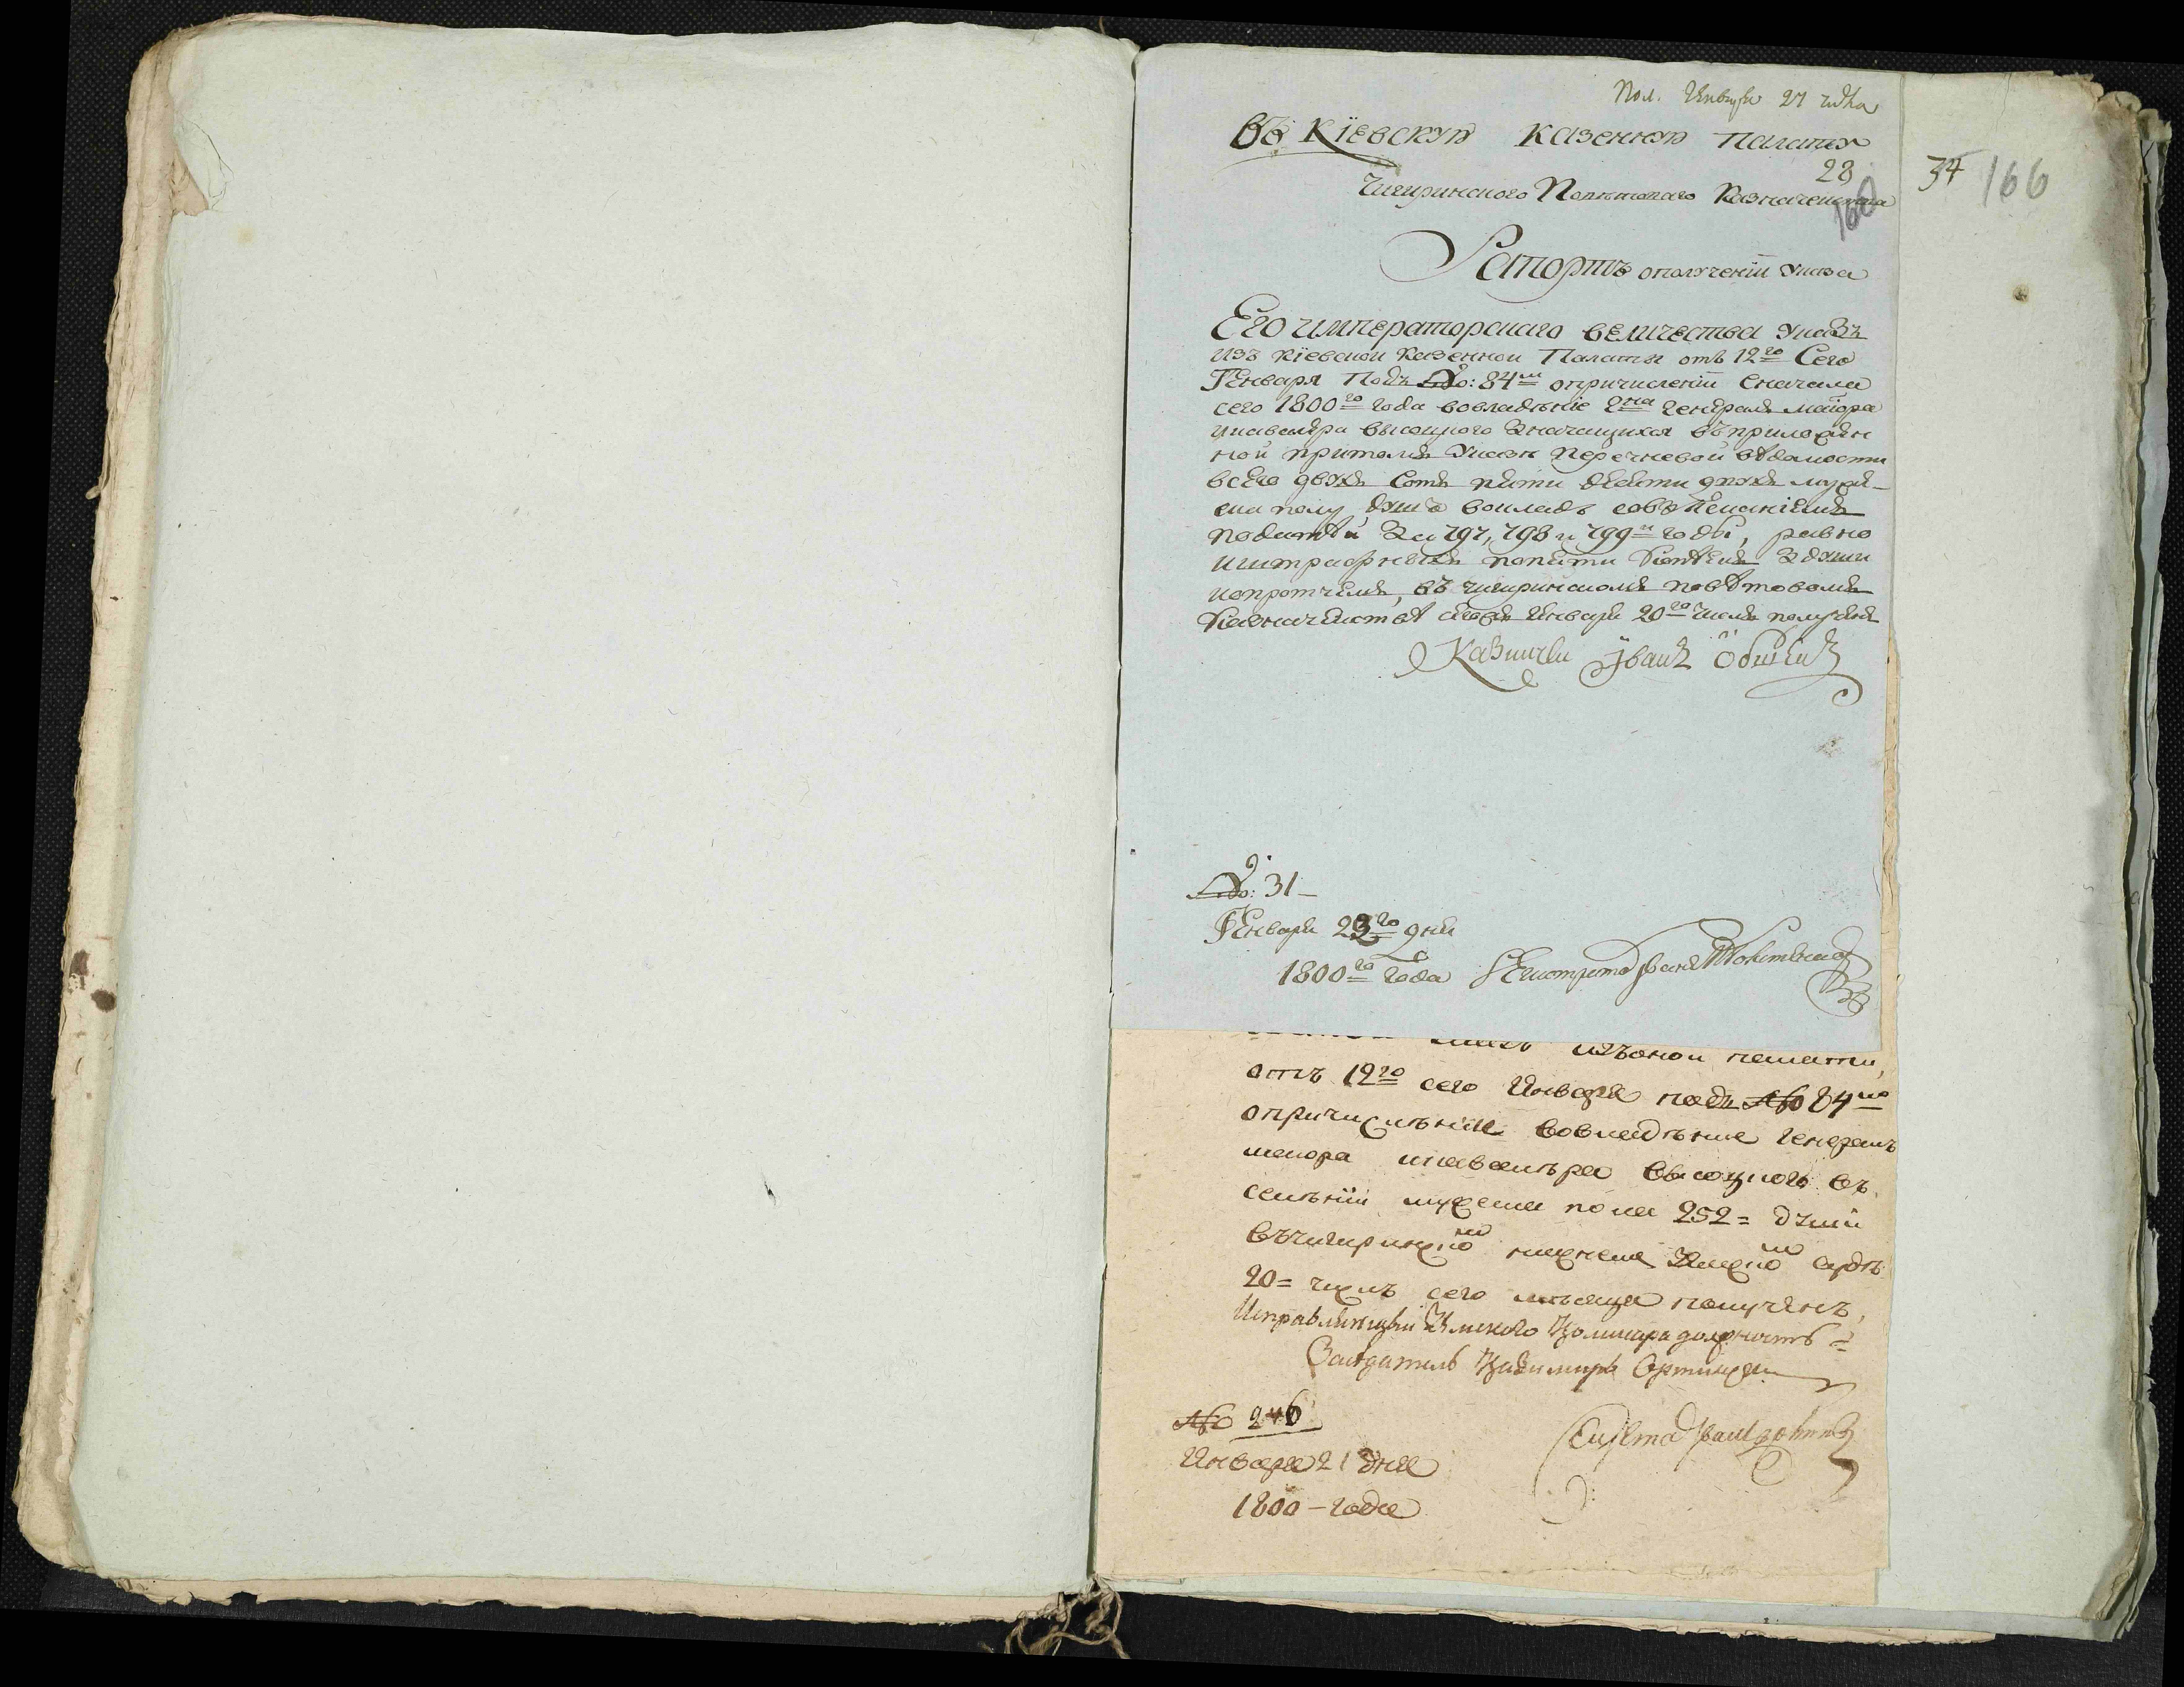 Пол. Января 27 числа
Въ Кїевскую Казенную Палату
28
34 166
Чигиринского Поветоваго Казначейства
160
Рапортъ ополученїи указа
Его императорскаго величества указъ
изъ кїевской казенной Палаты отъ 12го Сего
Генваря Подъ №: 84м опричисленїи сначала
сего 1800го года вовладѣнїе гна генералъ маїора
икавалера высоцкого значащихся въприложен
ной притомъ указѣ перечневой вѣдомости
всего двухъ сотъ пяти десяти двухъ муже-
ска полу душъ вокладъ совзысканїемъ
податей За 797, 798 и 799й годы, равно
иштрафныхъ попяти копѣекъ Здуши
ипротчемъ, въ чигиринскомъ повѣтовомъ
казначействѣ сегожъ января 20го числа полученъ
Казначеи Їванъ
№: 31
Генваря 23го дня
1800го года Регистраторъ Иванъ
указъ изъоной палаты,
отъ 12го сего Января подъ № 84мъ
опричисленїи вовладѣние генералъ
маиора икавалера высоцкого въ
селенїи мужеска пола 252= душ
въчигиринскомъ нижнемъ Земскомъ судѣ
20= числъ сего мѣсяца полученъ,
Исправляющїй Земского Комисара должность=
Заседатель Казимиръ
№ 246
Января 21 дня
1800 – года